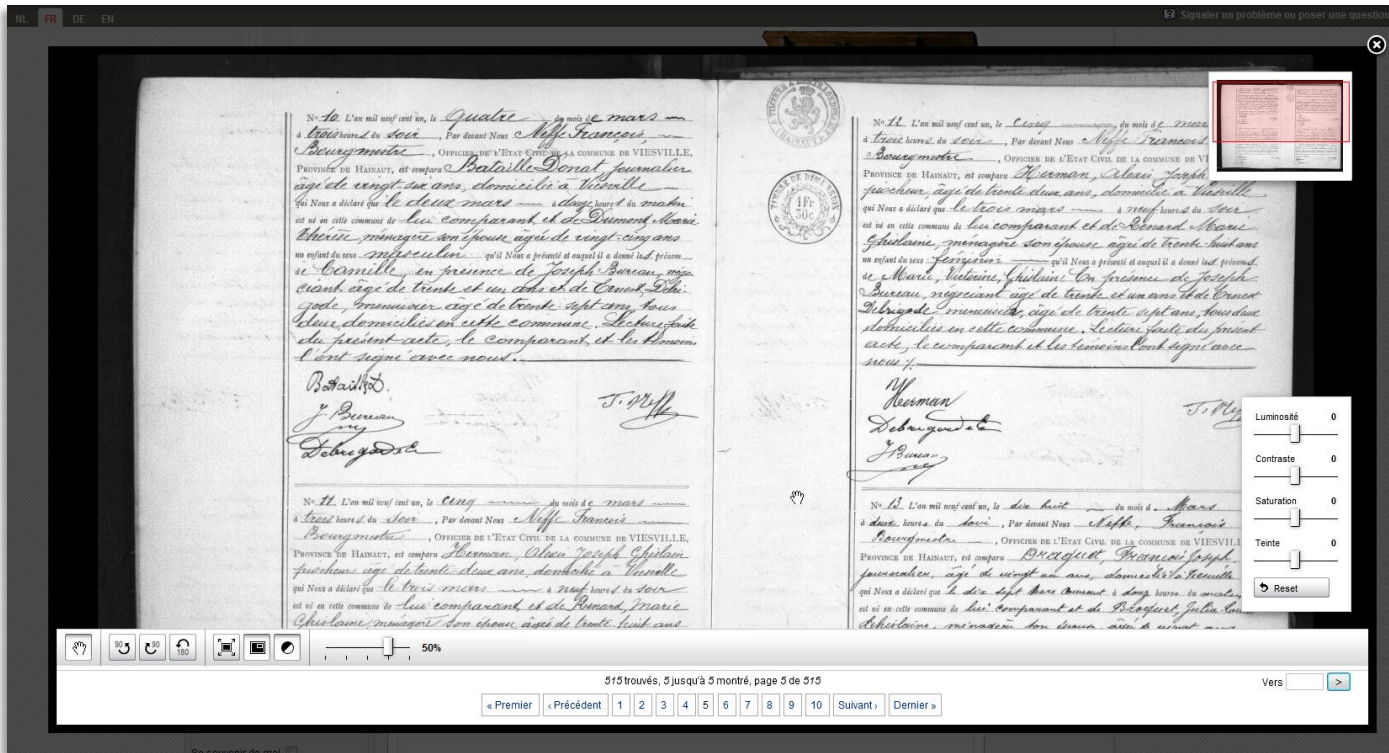 NL FR DE EN
Signaler un problème ou poser une question
Nº 10. L'an mil neuf cent un, le Quatre du mois de mars
à trois heures du soir, Par devant Nous Neffe François
Bourgmestre, OFFICIER DE L'ETAT CIVIL DE LA COMMUNE DE VIESVILLE,
PROVINCE DE HAINAUT, est comparu Bataille Donat journalier
âgé de vingt-six ans, domicilié à Viesville
qui Nous a déclaré que le deux mars à douze heures du matin
est né en cette commune de lui comparant et de Dumont, Marie
Thérèse, ménagère son épouse âgée de vingt-cinq ans
un enfant du sexe masculin qu'il Nous a présenté et auquel il a donné les prénoms
de Camille, en présence de Joseph Bureau, négo
ciant âgé de trente et un ans et de Ernest, Debri
gode, menuisier âgé de trente sept ans, tous
deux domiciliés en cette commune. Lecture faite
du présent acte, le comparant et les témoins
l'ont signé avec nous.
Bataille D.
J. Bureau
F. Neffe
Debrigode E
Nº 11. L'an mil neuf cent un, le cinq du mois de mars
à trois heures du soir, Par devant Nous Neffe François
Bourgmestre, OFFICIER DE L'ETAT CIVIL DE LA COMMUNE DE VIESVILLE,
PROVINCE DE HAINAUT, est comparu Herman, Alexis Joseph Ghislain
puicheur âgé de trente deux ans, domicilié à Viesville
qui Nous a déclaré que le trois mars à neuf heures du soir
est né en cette commune de lui comparant, et de Renard, Marie
Ghislaine, ménagère son épouse âgée de trente huit ans
TIMBRE DE DIMENSION
1Fr
50c
Nº 12. L'an mil neuf cent un, le Cinq du mois de mar
à trois heures du soir, Par devant Nous Neffe Francois
Bourgmestre, OFFICIER DE L'ETAT CIVIL DE LA COMMUNE DE VI
PROVINCE DE HAINAUT, est comparu Herman, Alexis, Joseph
puicheur, âgé de trente deux ans, domicilié à Viesville
qui Nous a déclaré que le trois mars à neuf heures du soir
est né en cette commune de lui comparant et de Renard Marie
Ghislaine, ménagère son épouse âgée de trente huit ans
un enfant du sexe féminin qu'il Nous a présenté et auquel il a donné les prénoms
de Marie, Victorine, Ghislain En présence de Joseph
Bureau, négociant âgé de trente et un ans et de Ernest
Debrigode menuisier, âgé de trente sept ans, tous deux
domiciliés en cette commune. Lecture faite du présent
acte, le comparant et les témoins l'ont signé avec
nous
Herman
Debrigode E
J Bureau
Nº 13. L'an mil neuf cent un, le dix huit du mois de Mars
à deux heures du soir, Par devant Nous Neffe, Francois
Bourgmestre, OFFICIER DE L'ETAT CIVIL DE LA COMMUNE DE VIESVILL
PROVINCE DE HAINAUT, est comparu Braquet, François Joseph
journalier, âgé de vingt un ans, domicilié à Viesville
qui Nous a déclaré que le dix sept Mars courant à douze heures du matin
est né en cette commune de lui comparant et de Brocquet, Julia
Ghislaine, ménagère son épouse, âgée de vingt
Luminosité 0
Contraste 0
Saturation 0
Teinte 0
Reset
90 90 180
50%
515 trouvés, 5 jusqu'à 5 montré, page 5 de 515
Vers >
« Premier ‹ Précédent 1 2 3 4 5 6 7 8 9 10 Suivant › Dernier »
Se souvenir de moi